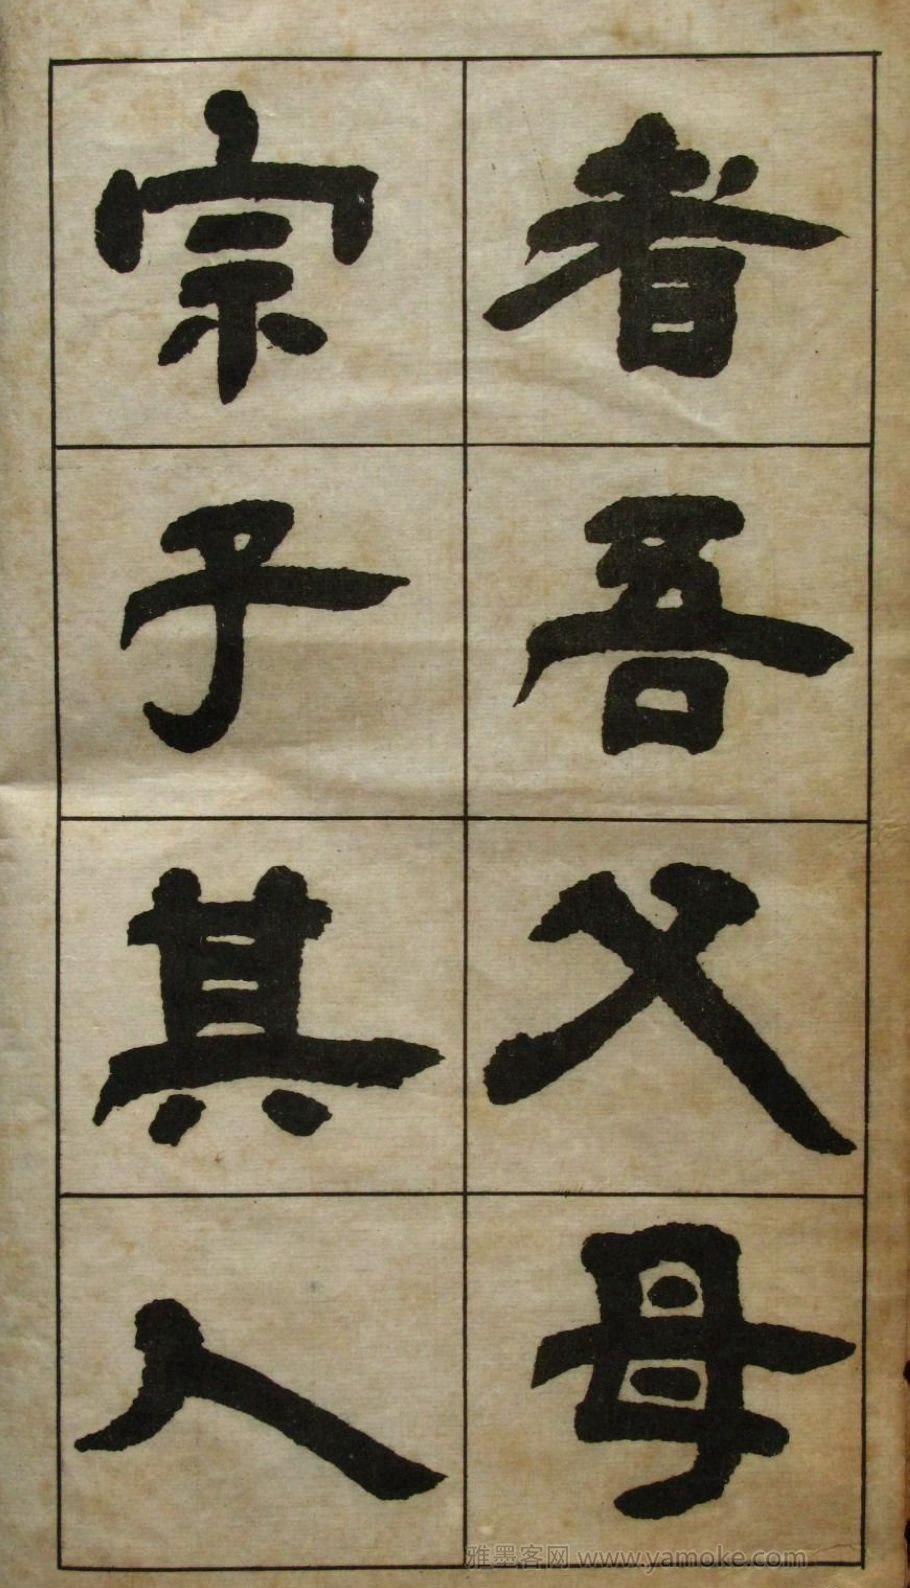 者吾父母
宗子其人
雅墨客网 www.yamoke.com